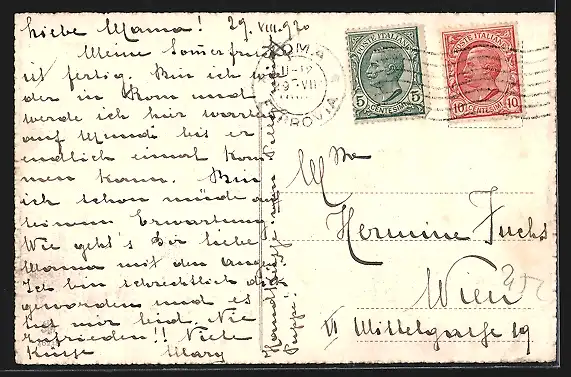 Liebe Mama! 29. VIII. 920
Meine Somerfrische
ist fertig. Bin ich wie
der in Rom und
werde ich hier warten
auf Mundi bis er
endlich einmal kom
men kann. Bin
ich schon müde auf
Erwartung.
Wie geht's Dir liebe
Mama mit den Augen
Ich bin schrecklich dick
geworden und es
tut mir leid. Nie
zufrieden!! Viele
Küsse Mary
Handküsse
Puppi!
ROMA
FERROVIA
POSTE ITALIANE
5 CENTESIMI 5
POSTE ITALIANE
10 CENTESIMI 10
Mme
Hermine Fuchs
Wien
VI Mittelgasse 19